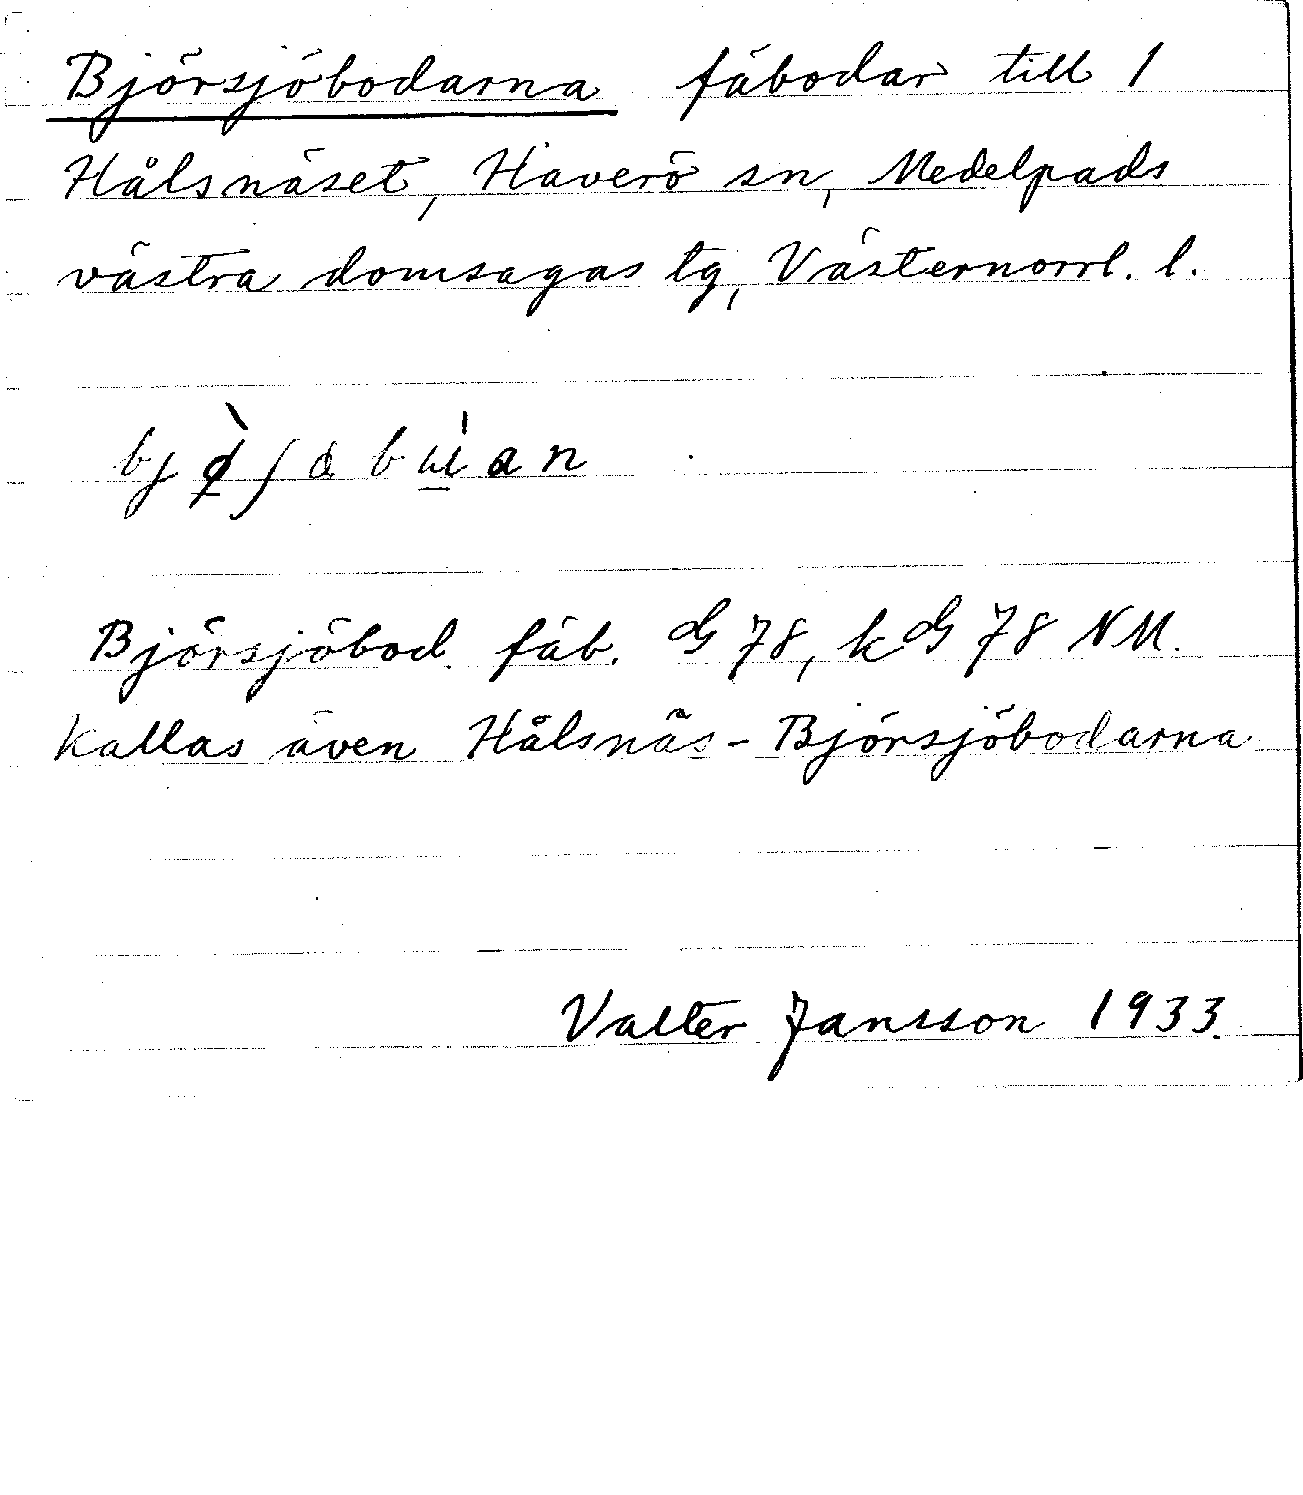 Björsjöbodarna fäbodar till 1
Hålsnäset, Haverö sn, Medelpads
västra domsagas tg, Västernorrl. l.
Björsjöbod. fäb. G 78, k G 78 NM.
kallas även Hålsnäs-Björsjöbodarna
Valter Jansson 1933.